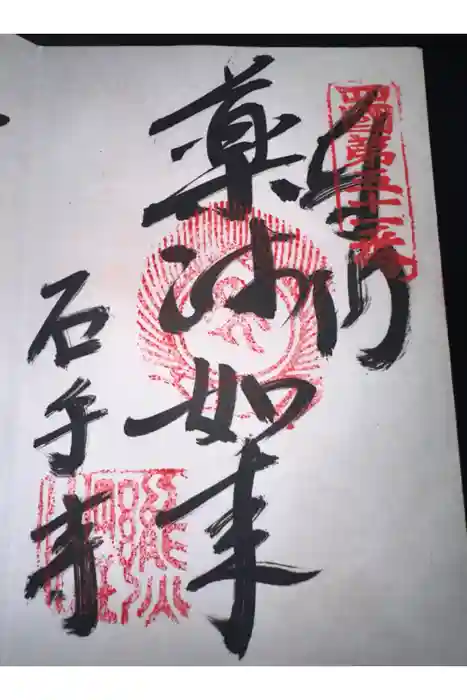 四國第五十一番
奉拝
薬師如来
石手寺